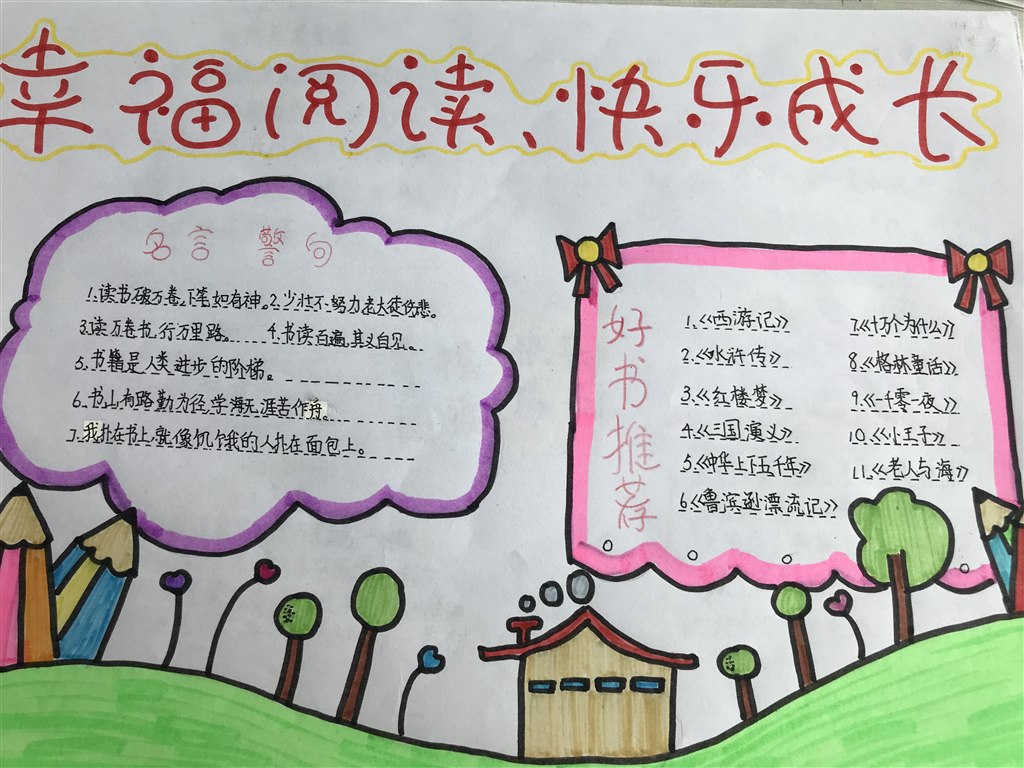 幸福阅读、快乐成长
名言警句
1.读书破万卷,下笔如有神。2.少壮不努力老大徒伤悲。
3.读万卷书,行万里路。 4.书读百遍,其义自见。
5.书籍是人类进步的阶梯。
6.书山有路勤为径,学海无涯苦作舟。
7.我扑在书上,就像饥饿的人扑在面包上。
好书推荐
1.《西游记》
2.《水浒传》
3.《红楼梦》
4.《三国演义》
5.《中华上下五千年》
6.《鲁滨逊漂流记》
7.《十万个为什么》
8.《格林童话》
9.《一千零一夜》
10.《小王子》
11.《老人与海》